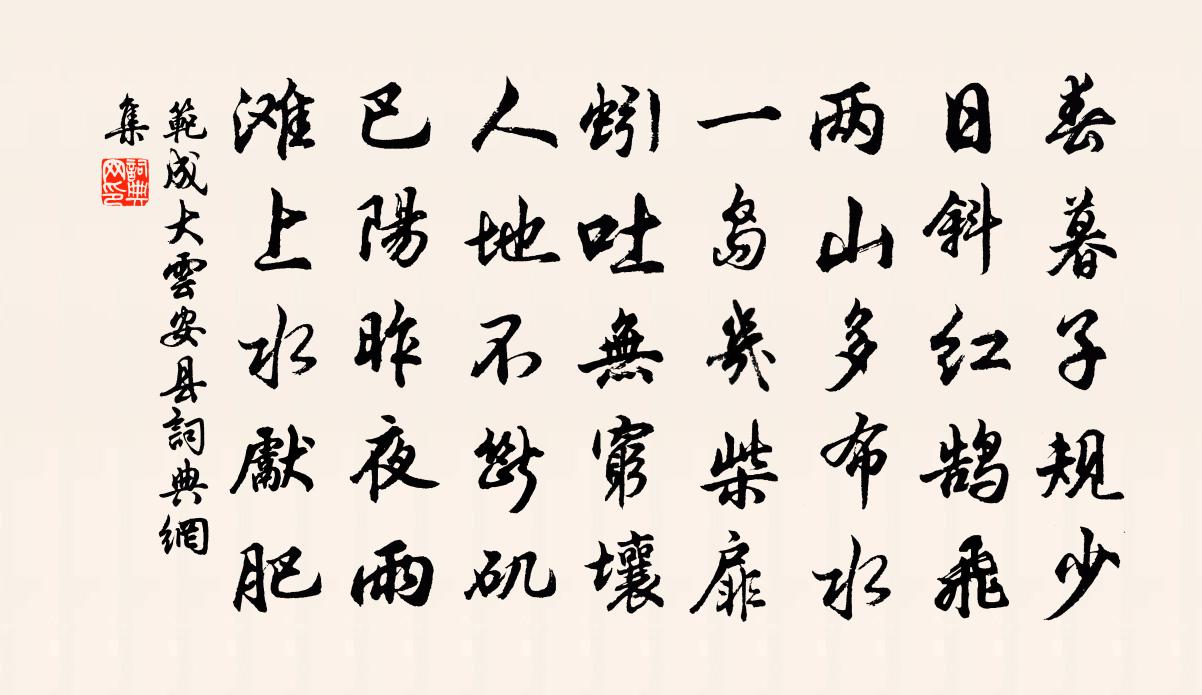 春暮子規少
日斜红鹄飛
两山多布水
一岛幾柴扉
蚓吐無窮壤
人地不斷矶
巴陽昨夜雨
滩上水獻肥
範成大雲安县詞典網
集
詞典
网印